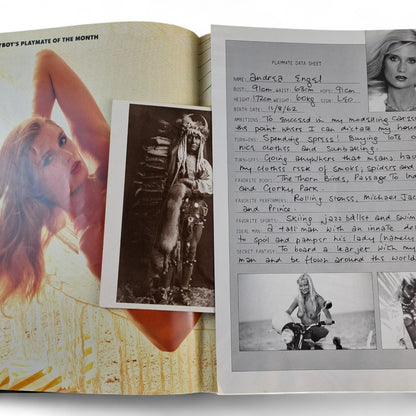 BOY'S PLAYMATE OF THE MONTH
PLAYMATE DATA SHEET
NAME: Andrea Engel
BUST: 91cm WAIST: 63cm HIPS: 91cm
HEIGHT: 172cm WEIGHT: 60kg SIGN: LEO
BIRTH DATE: 11/8/62
AMBITIONS: To succeed in my modelling career
this point where I can dictate my hours
TURN-ONS: Spending Sprees! Buying lots o
nice clothes and Sunbaking.
TURN-OFFS: Going anywhere that means hav
my clothes risk of smoke, spiders and
FAVORITE BOOKS: The Thorn Birds, Passage To Ind
and Gorky Park
FAVORITE PERFORMERS: Rolling Stones, Michael Jac
and Prince
FAVORITE SPORTS: Skiing, jazz ballet and Swim
IDEAL MAN: A tall man with an innate de
to spoil and pamper his lady (namely
SECRET FANTASY: To board a lear jet with my
man and be flown around the world